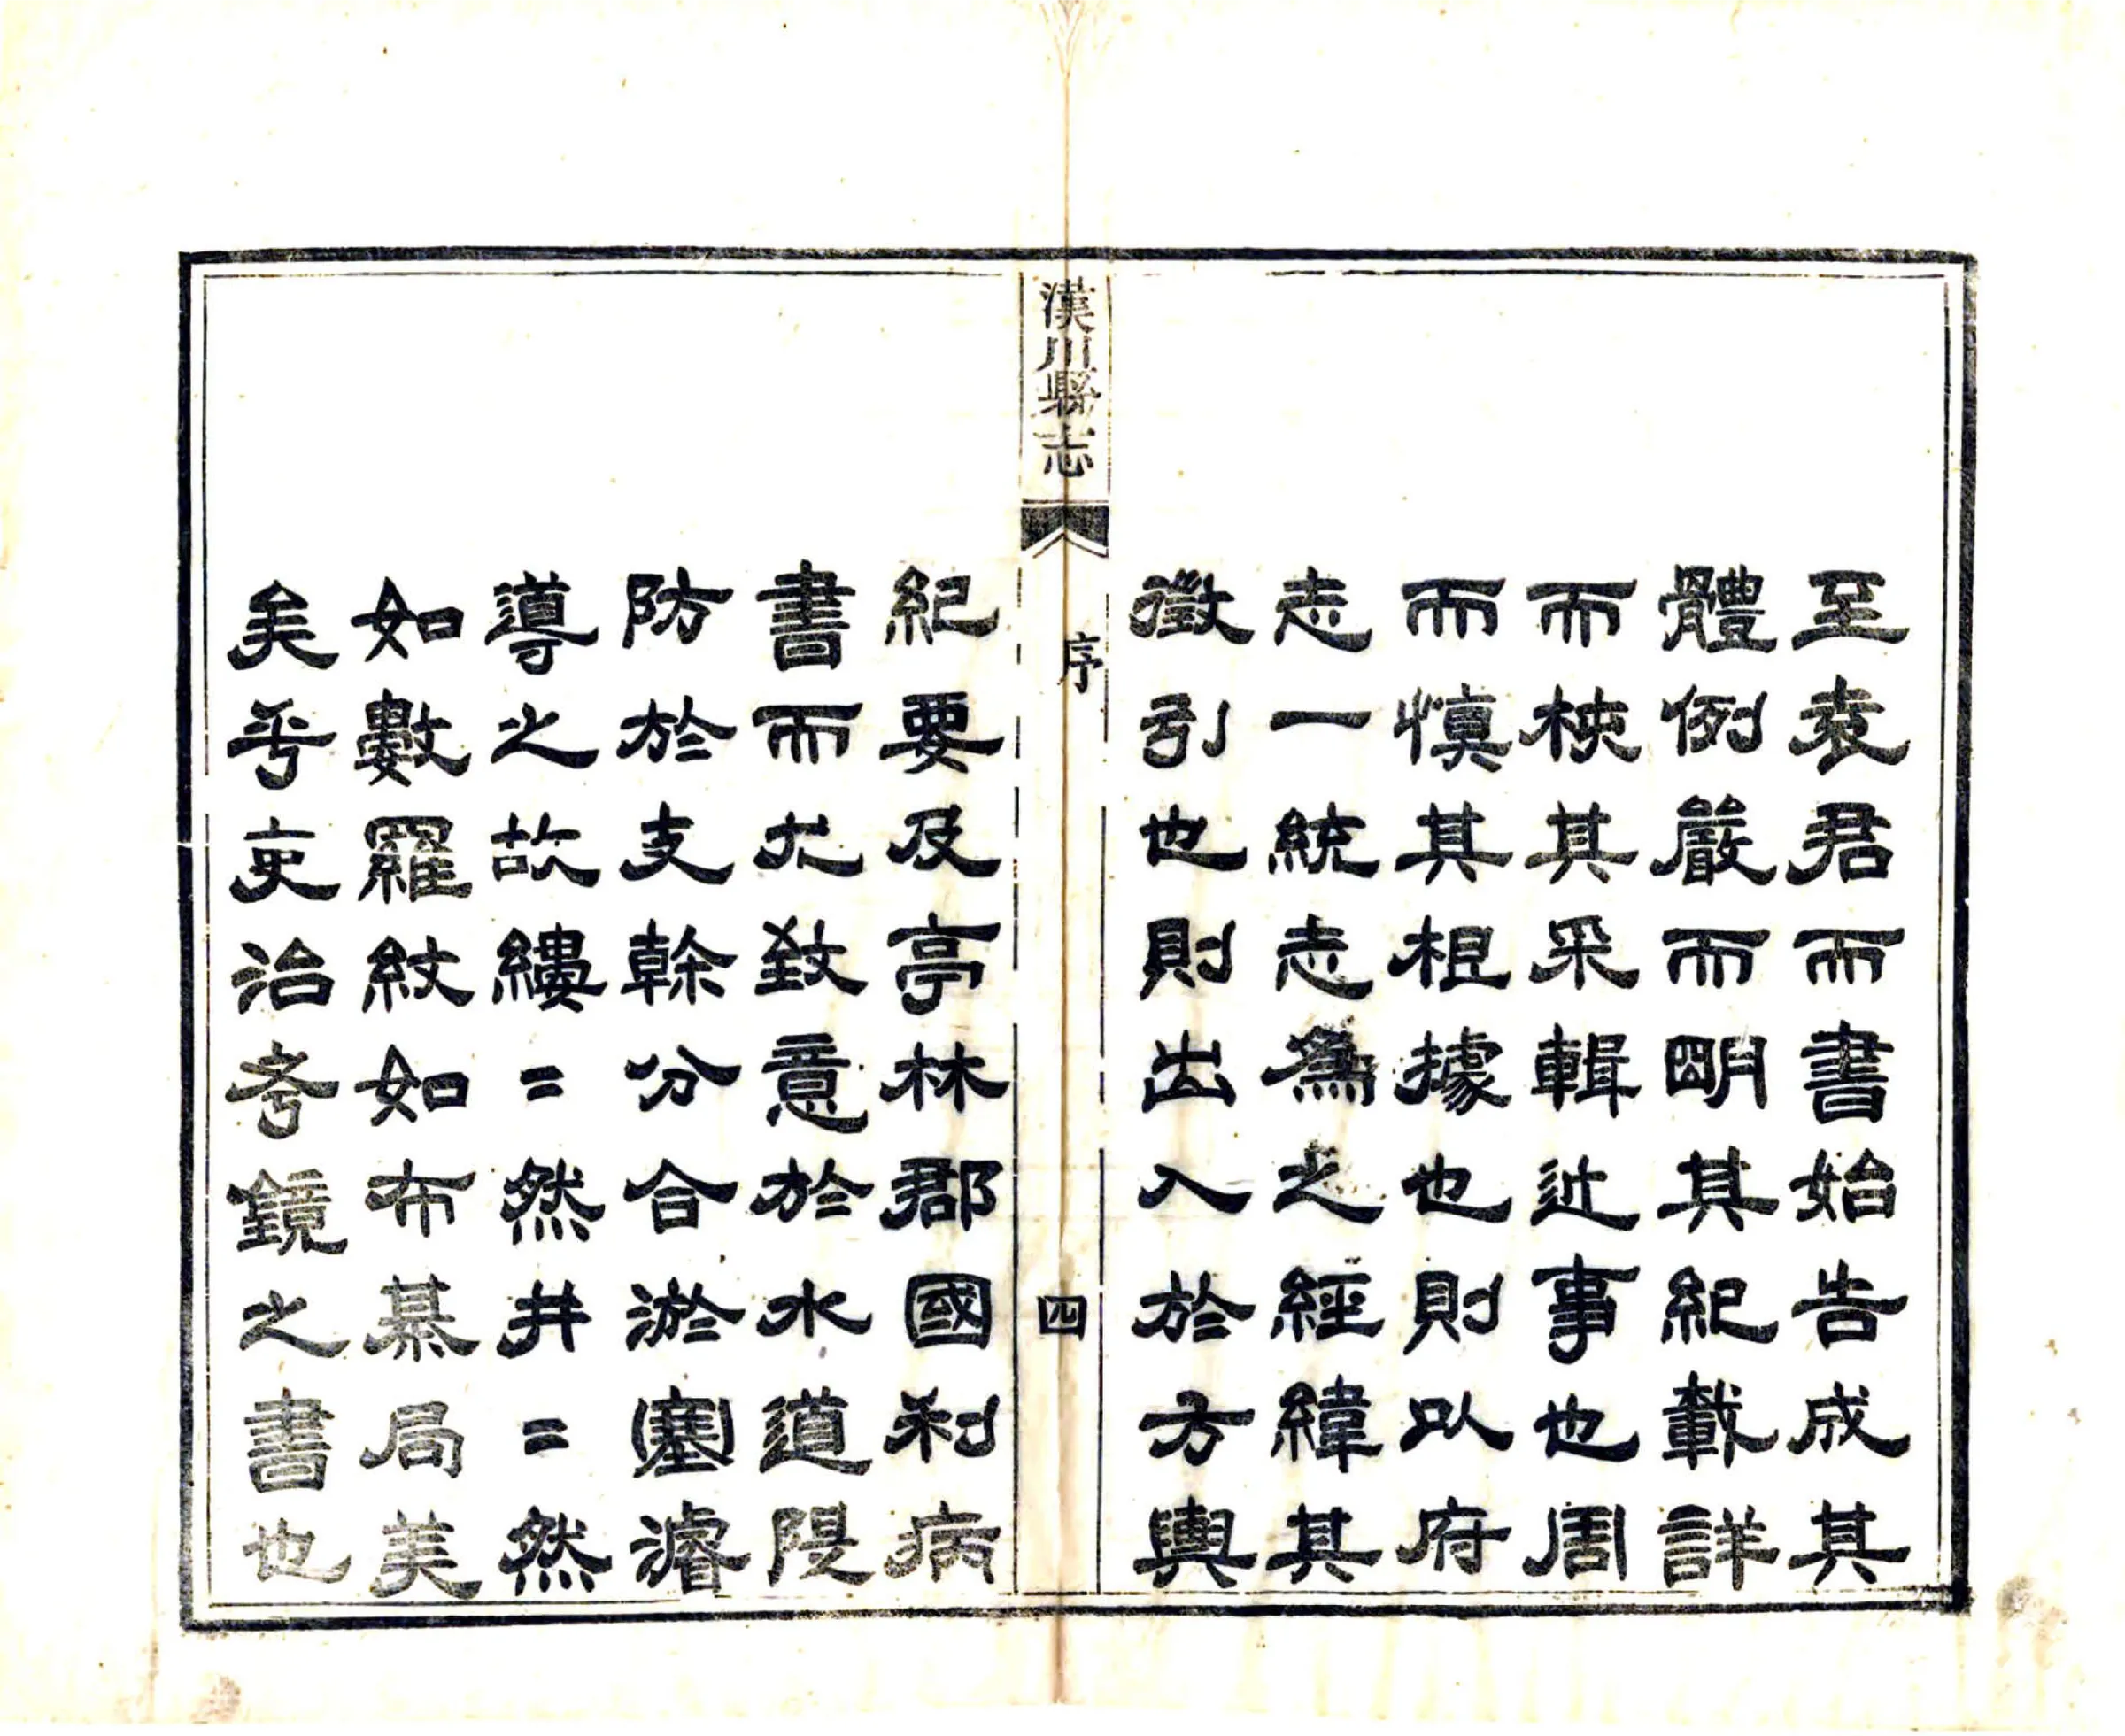 至袁君而書始告成其
體例嚴而明其紀載詳
而核其采輯近事也周
而慎其根據也則以府
志一統志為之經緯其
徵引也則出入於方輿
漢川縣志
序
四
紀要及亭林郡國利病
書而尤致意於水道隄
防於支幹分合淤塞濬
導之故縷=然井=然
如數羅紋如布棊局美
矣乎吏治考鏡之書也